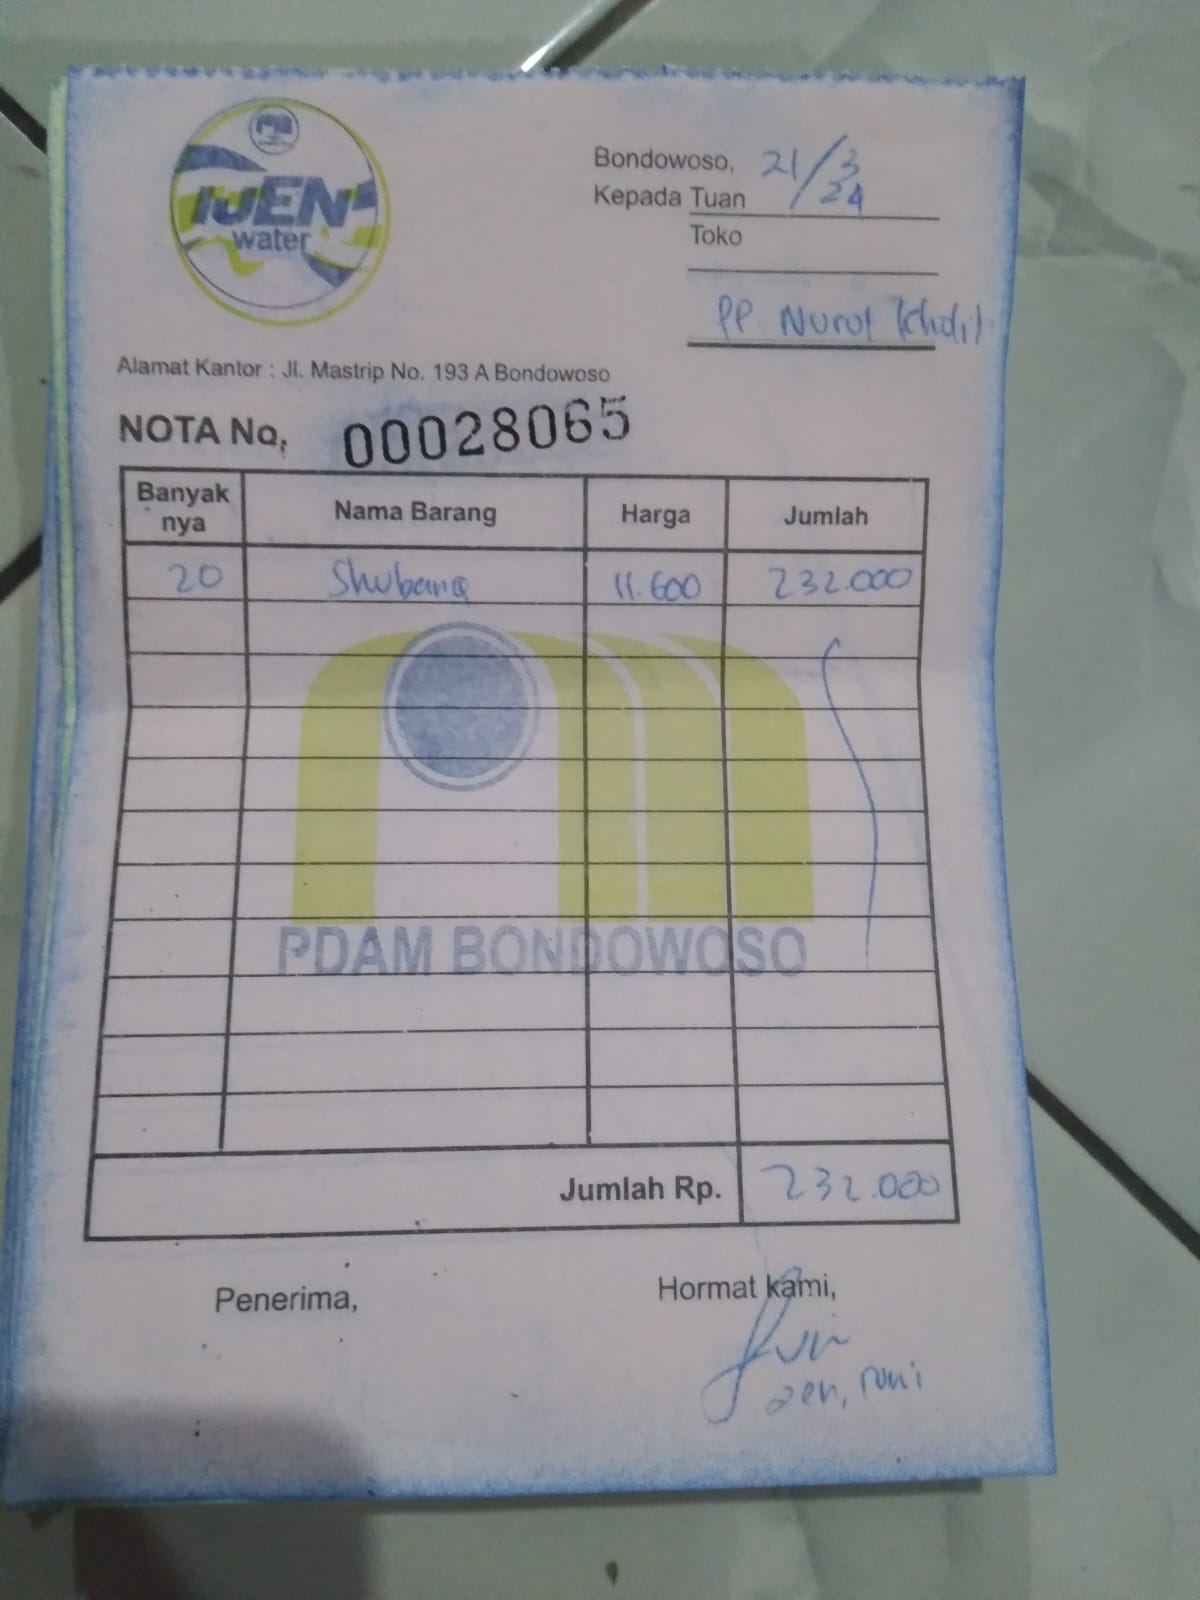 IJEN
water
Bondowoso, 21/3/24
Kepada Tuan
Toko
PP. Nurul
Alamat Kantor : Jl. Mastrip No. 193 A Bondowoso
NOTA No. 00028065
Banyak nya Nama Barang Harga Jumlah
20 Shubanq 11.600 232.000
PDAM BONDOWOSO
Jumlah Rp. 232.000
Penerima, Hormat kami,
zen, roni